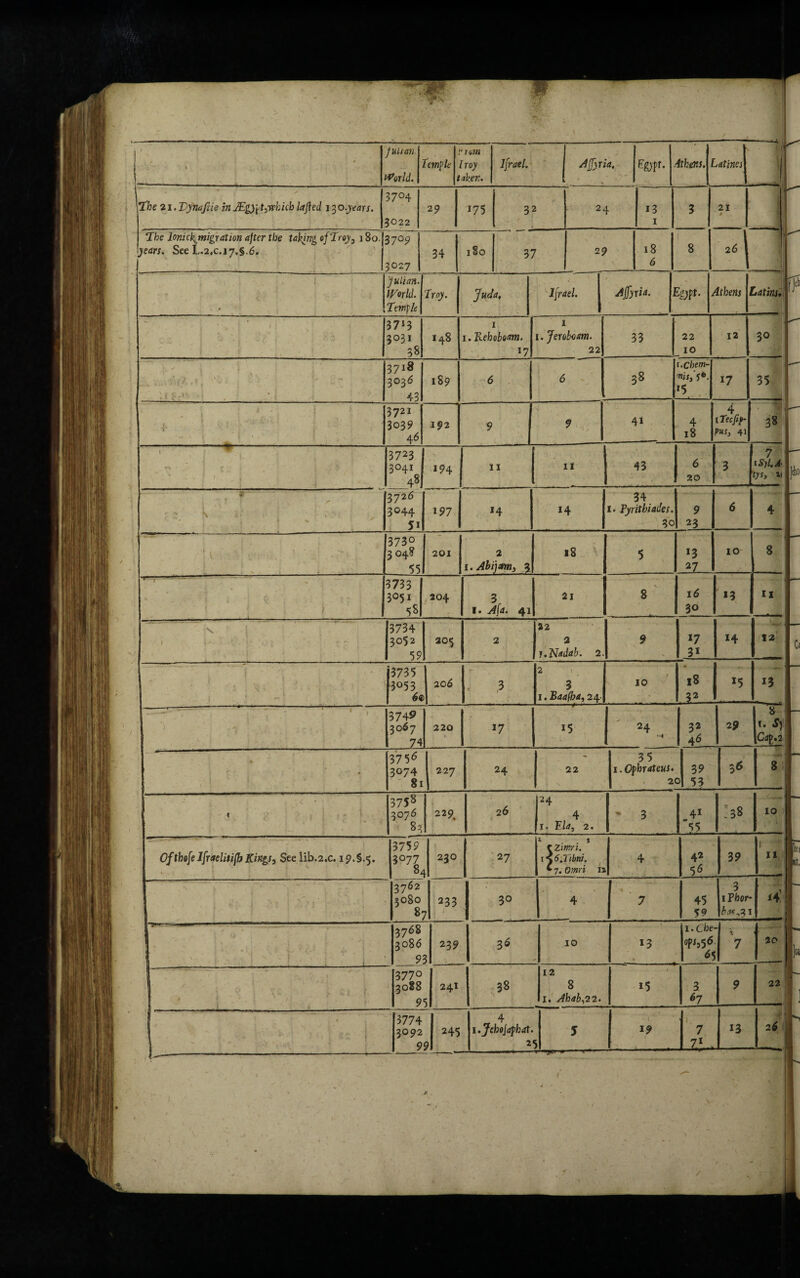 Julian | Temple | From | Israel. | Assyria. | Egypt. | Athens. | Latines
World. | Troy
taken.
The 21. Dynastie in Ægypt, which lasted 130. years. | 3704 | 29 | 175 | 32 | 24 | 13 | 3 | 21
3022 | 1
The Ionick migration after the taking of Troy, 180. | 3709 | 34 | 180 | 37 | 29 | 18 | 8 | 26
years. See L.2.c.17.§.6. | 3027 | 6
Julian.
World. | Troy. | Juda. | Israel. | Assyria. | Egypt. | Athens | Latins.
Temple
3713 | 1 | 1
3031 | 148 | 1. Rehoboam. | 1. Jeroboam. | 33 | 22 | 12 | 30
38 | 17 | 22 | 10
3718 | 1. Chem-
3036 | 189 | 6 | 6 | 38 | nis, 50. | 17 | 35
43 | 15
3721 | 4
3039 | 192 | 9 | 9 | 41 | 4 | 1 Tecsip- | 38
46 | 18 | pus, 41
3723 | 7
3041 | 194 | 11 | 11 | 43 | 6 | 3 | 1 Syl. A-
48 | 20 | tys,
3726 | 34
3044 | 197 | 14 | 14 | 1. Pyrithiades. | 9 | 6 | 4
51 | 30 | 23
3730
3048 | 201 | 2 | 18 | 5 | 13 | 10 | 8
55 | 1. Abijam, 3 | 27
3733
3051 | 204 | 3 | 21 | 8 | 16 | 13 | 11
58 | 1. Asa. 41 | 30
3734 | 22
3052 | 205 | 2 | 2 | 9 | 17 | 14 | 12
59 | 1. Nadab. 2. | 31
3735 | 2
3053 | 206 | 3 | 3 | 10 | 18 | 15 | 13
60 | 1. Baasha, 24. | 32
3749 | 8
3067 | 220 | 17 | 15 | 24 | 32 | 29 | 1. Sy
74 | 46 | Cap. 2
3756 | 35
3074 | 227 | 24 | 22 | 1. Ophrateus. | 39 | 36 | 8
81 | 20 | 53
3758 | 24
3076 | 229. | 26 | 4 | 3 | 41 | 38 | 10
83 | 1. Ela, 2. | 55
3759 | 1 Zimri. 1
Of those Israelitish Kings, See lib.2.c.19.§.5. | 3077 | 230 | 27 | 1 6. Tibni. | 4 | 42 | 39 | 11
84 | 7. Omri 12 | 56
3762 | 3
3080 | 233 | 30 | 4 | 7 | 45 | 1 Phor- | 14
87 | 59 | bas, 31
3768 | 1. Che-
3086 | 239 | 36 | 10 | 13 | ops, 56. | 7 | 20
93 | 65
3770 | 12
3088 | 241 | 38 | 8 | 15 | 3 | 9 | 22
95 | 1. Ahab, 22. | 67
3774 | 4
3092 | 245 | 1. Jehosaphat. | 5 | 19 | 7 | 13 | 26
99 | 25 | 71